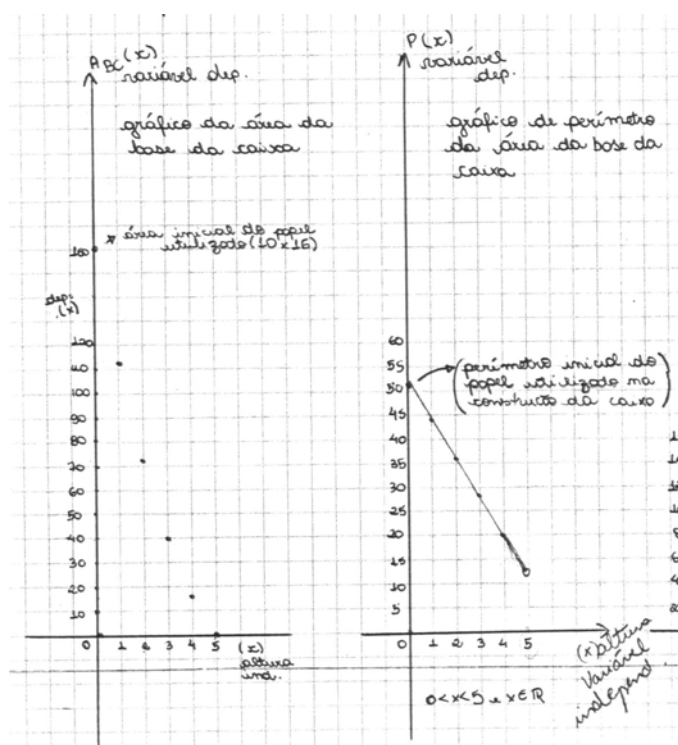 A BC (x)
variável dep.
gráfico da área da
base da caixa
* área inicial do papel
utilizado (10x16)
160
dep.
(x)
120
110
100
90
80
70
60
50
40
30
20
10
0 1 2 3 4 5 (x)
altura
ind.
P(x)
variável
dep.
gráfico de perímetro
da área da base da
caixa
60
55
50
45
40
35
30
25
20
15
10
5
(perímetro inicial do
papel utilizado na
construção da caixa)
0 1 2 3 4 5
(x) altura
Variável
independ.
0<x<5 e x∈R